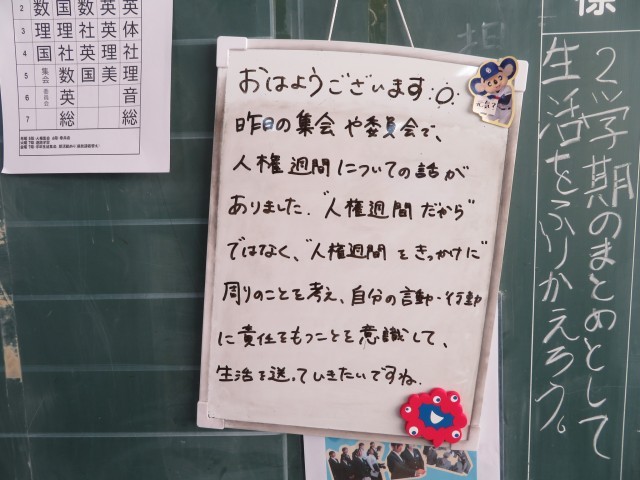 おはようございます
昨日の集会や委員会で、
人権週間についての話が
ありました。"人権週間だから"
ではなく、"人権週間をきっかけに"
周りのことを考え、自分の言動・行動
に責任をもつことを意識して、
生活を送っていきたいですね。
2学期のまとめとして
生活をふりかえろう。
様
2 数 国 数 英 英
3 理 理 社 英 体
4 国 社 英 理 社
5 集会 数 国 美 理
6 委員会 英 音
7 総 総